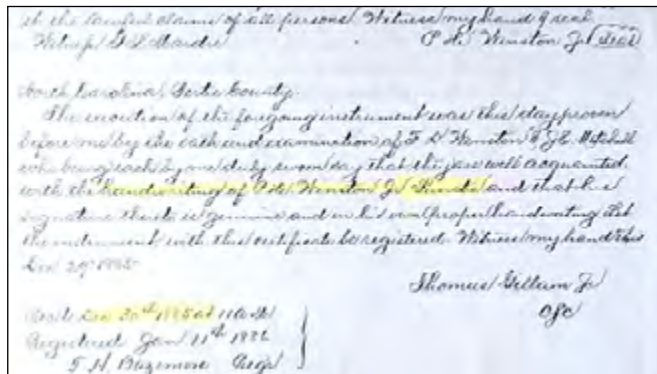 of the lawful claims of all persons. Witness my hand & seal
Witness P. H. Winston Jr (Seal)
North Carolina, Bertie County.
The execution of the foregoing instrument was this day proven
before me by the oath and examination of F D Winston & J. E. Mitchell
who being each by me duly sworn say that they are well acquainted
with the handwriting of P. H. Winston Jr and that his
signature thereto is genuine and in his own proper handwriting Let
the instrument with this certificate be registered. Witness my hand this
Dec 29 1885
Thomas Gillam Jr
CSC
Dec 30th 1885 at
Registered Jan 11th 1886
T. H. Bazemore Regr